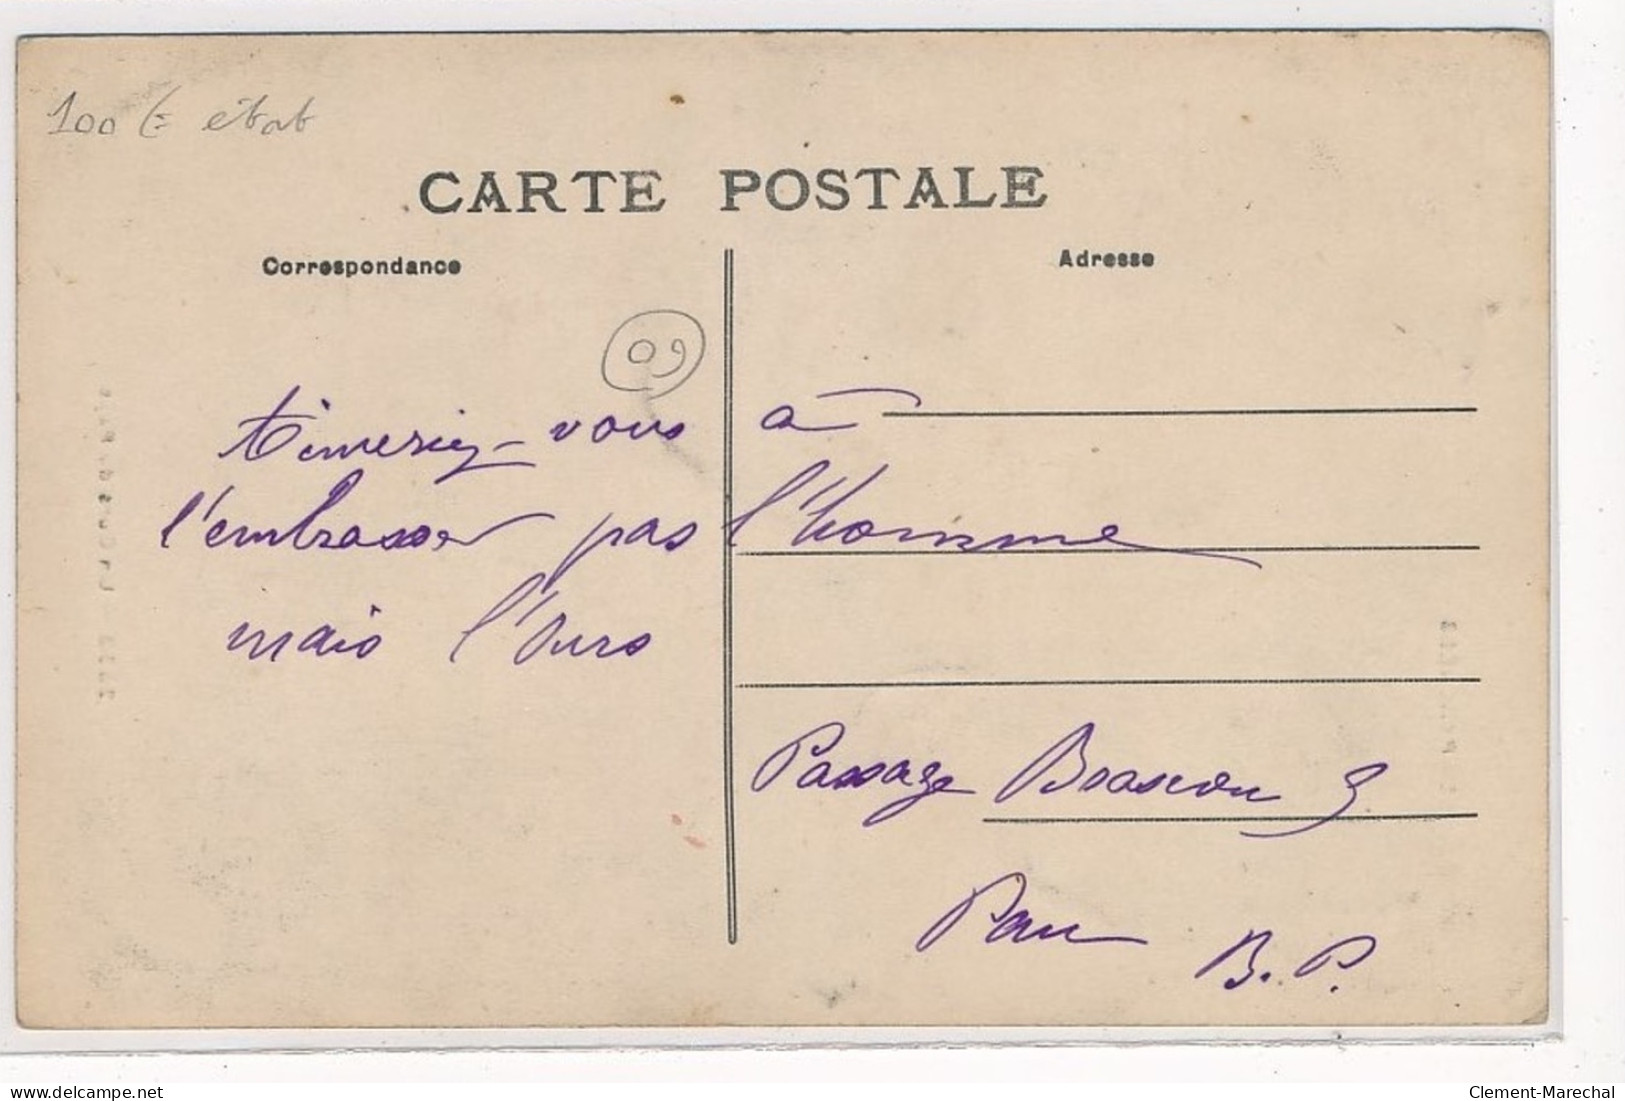 100 € état
CARTE POSTALE
Correspondance
Adresse
09
aimeriez-vous à
l'embrasser pas l'homme
mais l'Ours
Passage
Pau
B.P.
delcampe.net
Clement-Marechal